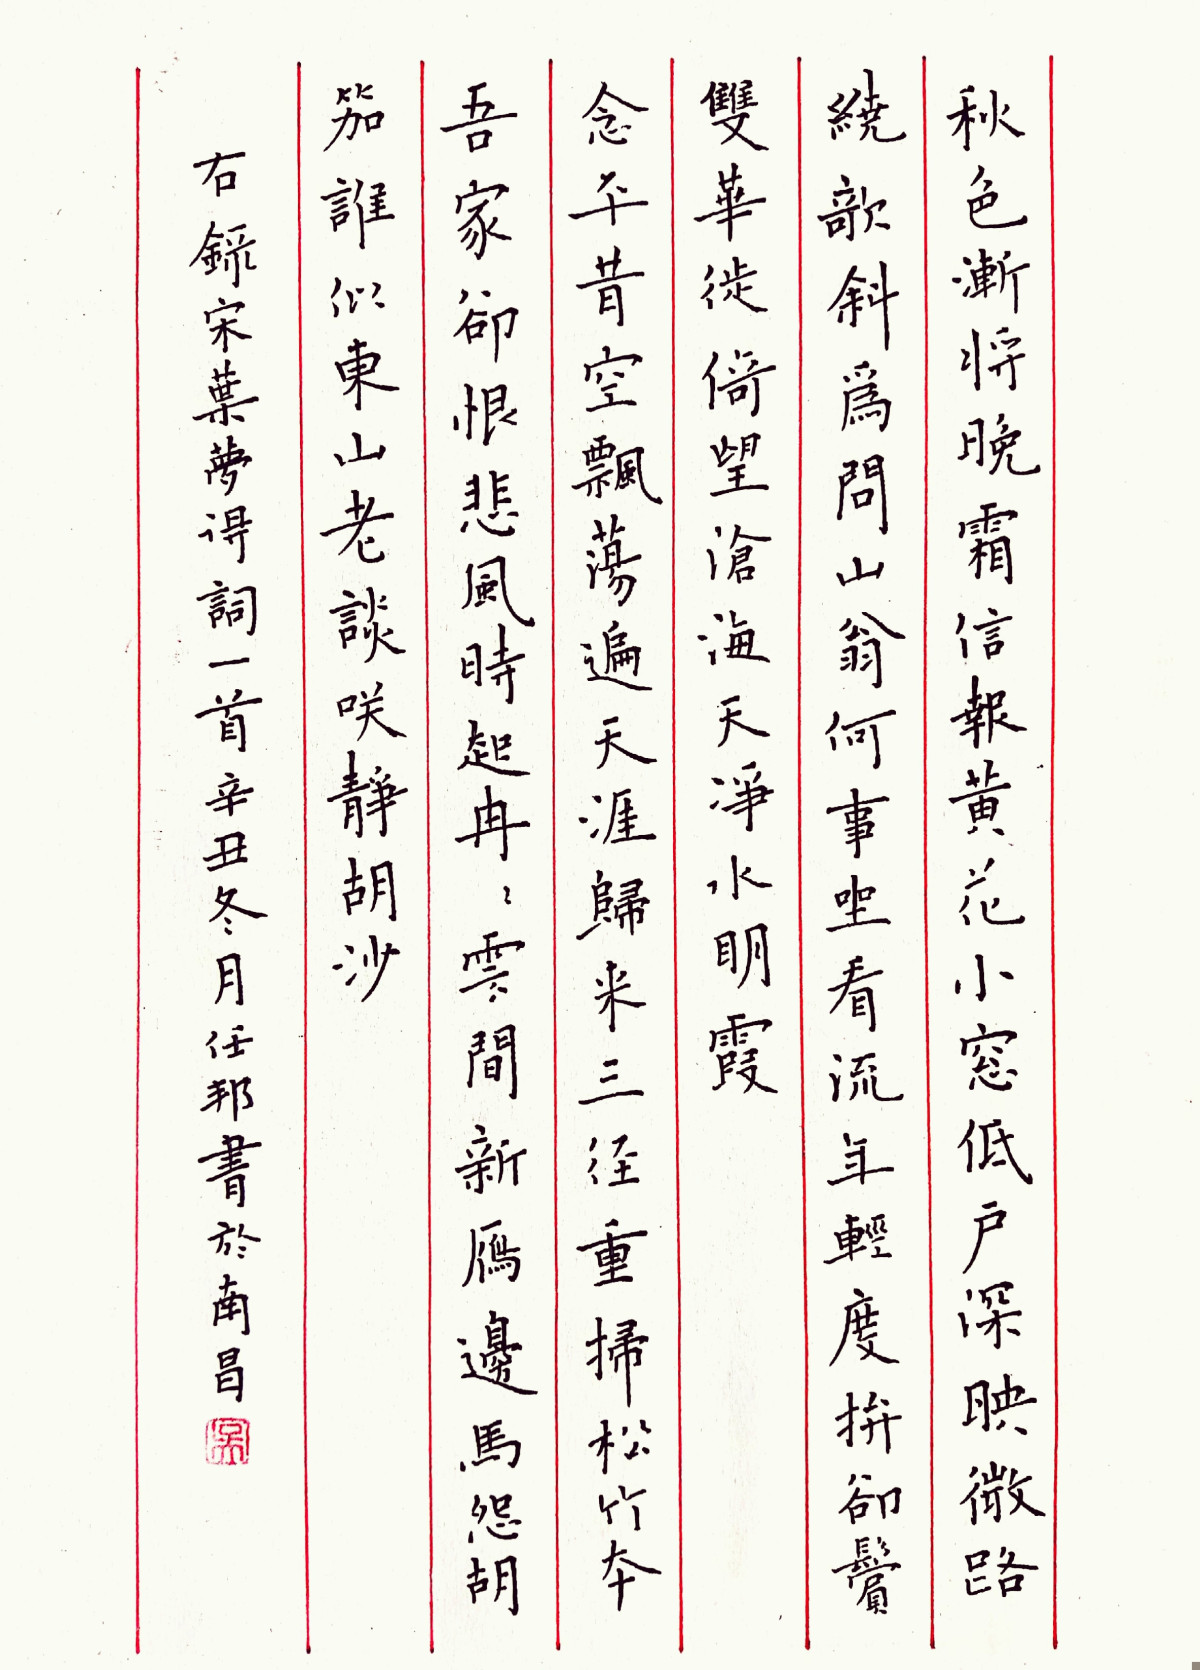 秋色漸將晚霜信報黄花小窓低户深映微路
繞欹斜爲問山翁何事坐看流年輕度拚卻鬢
雙華徙倚望滄海天淨水明霞
念平昔空飄蕩遍天涯歸来三径重掃松竹本
吾家卻恨悲風時起冉〻雲間新鴈邊馬怨胡
笳誰似東山老談咲静胡沙
右録宋葉夢得詞一首辛丑冬月任邦書於南昌